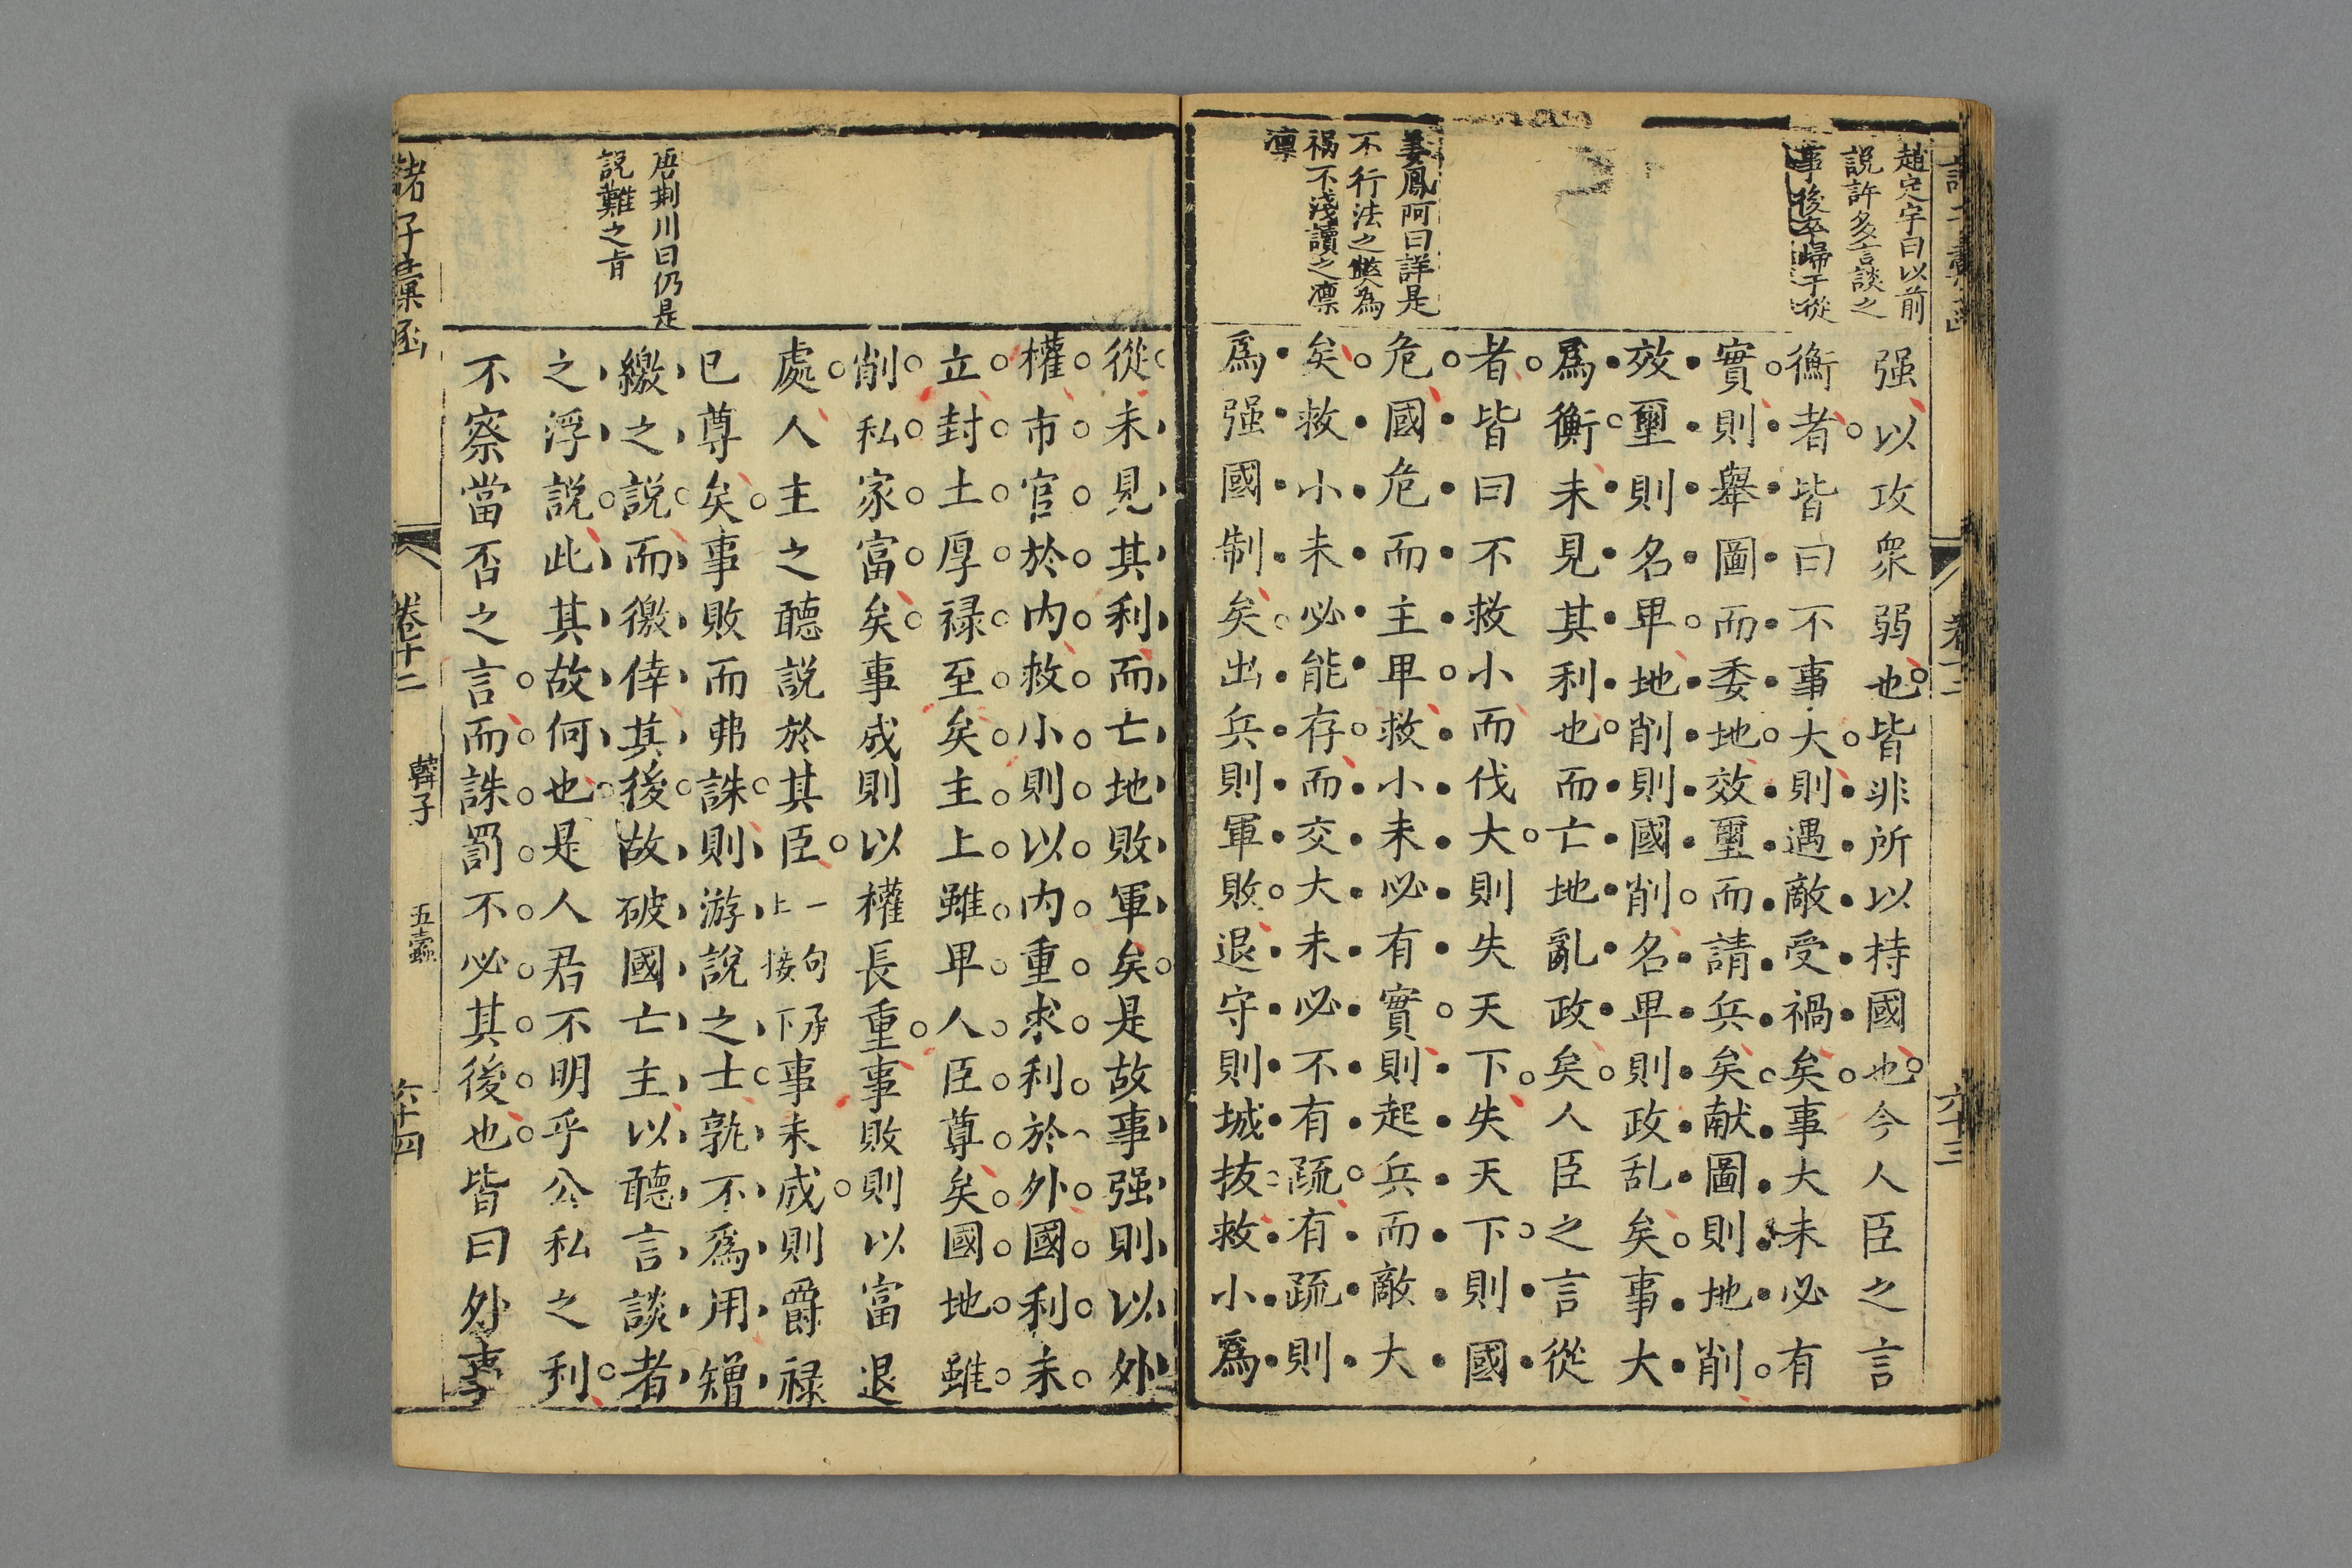 趙定宇曰以前
說許多言談之
事後卒歸于從
强以攻衆弱也皆非所以持國也今人臣之言
衡者皆曰不事大則遇敵受禍矣事大未必有
實則舉圖而委地效璽而請兵矣献圖則地削
效璽則名卑地削則國削名卑則政乱矣事大
爲衡未見其利也而亡地亂政矣人臣之言從
者皆曰不救小而伐大則失天下失天下則國
姜鳳阿曰詳是
不行法之獘為
祸不淺讀之凛
凛
危國危而主卑救小未必有實則起兵而敵大
矣救小未必能存而交大未必不有疏有疏則
爲强國制矣出兵則軍敗退守則城拔救小爲
從未見其利而亡地敗軍矣是故事强則以外
權市官於内救小則以内重求利於外國利未
立封土厚禄至矣主上雖卑人臣尊矣國地雖
削私家富矣事成則以權長重事敗則以富退
處人主之聽説於其臣一句承上接下事未成則爵禄
已尊矣事敗而弗誅則游説之士孰不爲用矰
唐荆川曰仍是
説難之旨
繳之説而徼倖其後故破國亡主以聽言談者
之浮説此其故何也是人君不明乎公私之利
不察當否之言而誅罰不必其後也皆曰外事
諸子彙函
卷十二
韓子
五蠹
六十四